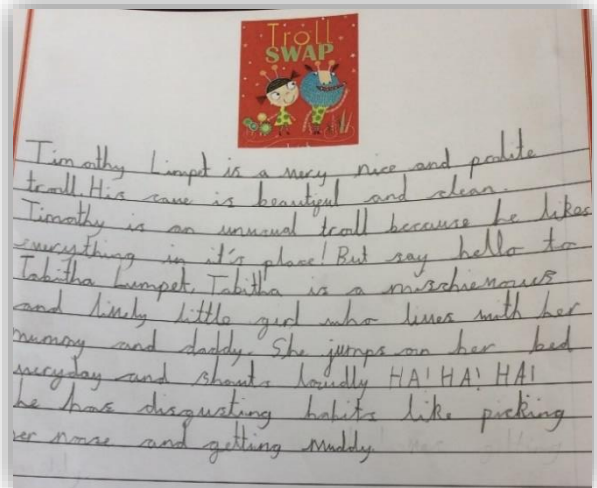 Troll
SWAP
Timothy Limpet is a very nice and polite
troll. His cave is beautiful and clean.
Timothy is an unusual troll because he likes
everything in it's place! But say hello to
Tabitha Lumpet. Tabitha is a mischievous
and lively little girl who lives with her
mummy and daddy. She jumps on her bed
everyday and shouts loudly HA! HA! HA!
he has disgusting habits like picking
er nose and getting muddy.